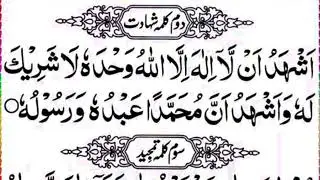 دوم کلمہ شہادت
اَشْهَدُ اَنْ لَّاۤ اِلٰهَ اِلَّا اللّٰهُ وَحْدَهٗ لَا شَرِيْكَ
لَهٗ وَاَشْهَدُ اَنَّ مُحَمَّدًا عَبْدُهٗ وَرَسُوْلُهٗ ○
سوم کلمہ تمجید